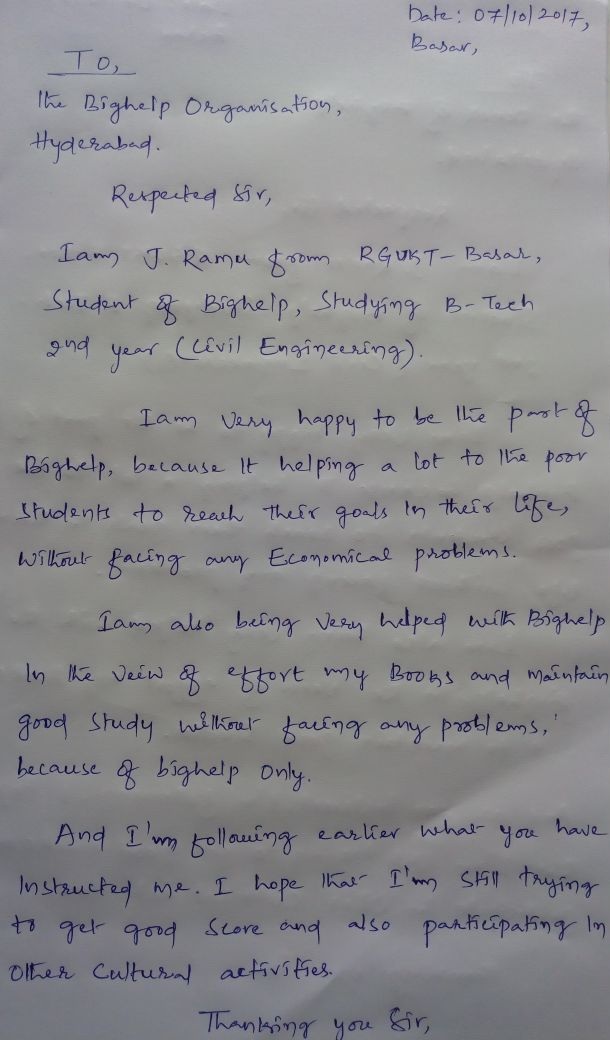 Date: 07/10/2017,
Basar,
To,
The Bighelp Organisation,
Hyderabad.
Respected Sir,
Iam J. Ramu from RGUKT-Basar,
Student of Bighelp, Studying B-Tech
2nd year (Civil Engineering).
Iam very happy to be the part of
Bighelp, because It helping a lot to the poor
students to reach their goals In their life,
Without facing any Economical problems.
Iam also being very helped with Bighelp
In the veiw of effort my Books and maintain
good study without facing any problems,
because of bighelp only.
And I'm following earlier what you have
Instructed me. I hope that I'm still trying
to get good score and also participating In
other cultural activities.
Thanking you Sir,